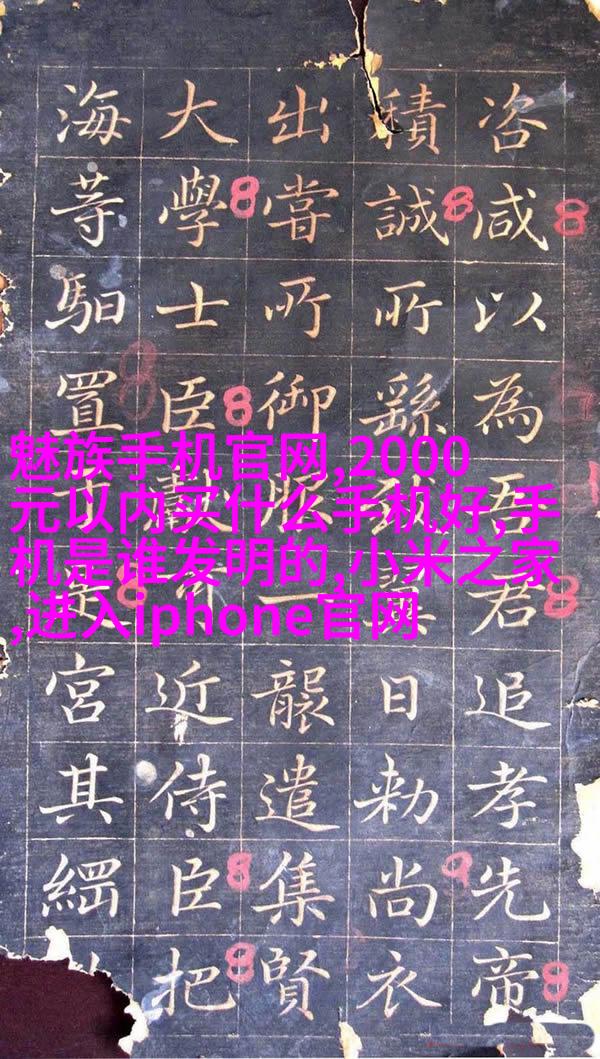 咨咸以為吾君追孝先帝
積誠所繇日勑尚衣
出嘗所御服一襲遣集賢
大學士臣近侍臣把
海等馹置于是宮其繝
魅族手机官网,2000
元以内买什么手机好,手
机是谁发明的,小米之家
,进入iphone官网